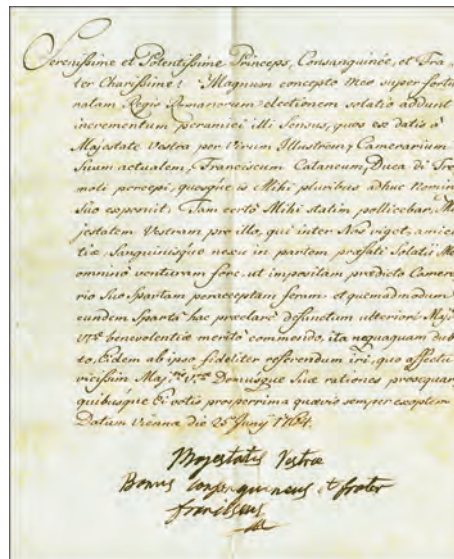 Serenissime et Potentissime Princeps, Consanguinee, et Fra-
ter Charissime! Magnum concepto meo super fortu-
natam Regis Romanorum electionem solatio addunt
incrementum peramici illi sensus, quos ex datis à
Majestate Vestra per Virum Illustrem, Camerarium
Suum actualem, Franciscum Cataneum, Duca di Ter
moli percepi, quosque is Mihi pluribus adhuc Nomine
Suo exposuit. Tam certò Mihi statim pollicebar, Ma
jestatem Vestram pro illo, qui inter Nos viget, amici
tiæ Sanguinisque nexu in partem præfati Solatii Mei
omninò venturam fore, ut impositam prædicto Camera
rio Suo Spartam peracceptam feram et quemadmodum
eundem Spartâ hac præclarè defunctum ulteriori Maj
Vræ benevolentiæ meritò commendo, ita nequaquam dubi
to, Eidem ab ipso fideliter referendum iri, quo affectu
vicissim Maj:tis Vræ Domusque Suæ rationes prosequar,
quibusque Ei votis prosperrima quævis semper exoptem
Datum Viennæ die 25â Junij 1764.
Majestatis Vestræ
Bonus consanguineus et frater
franciscus